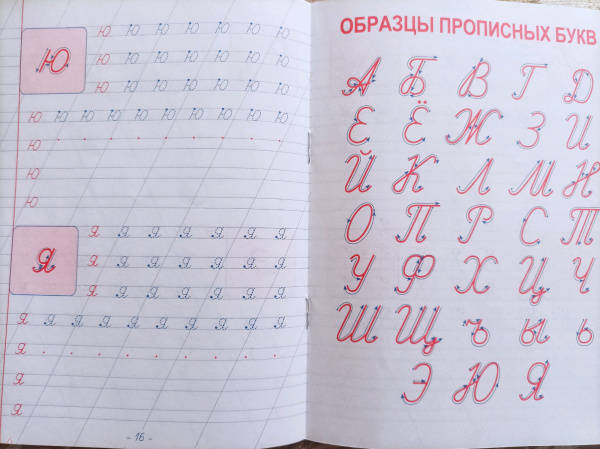 ю
ю ю ю ю ю ю ю ю
ю ю ю ю ю ю ю ю
ю ю ю ю ю ю ю ю
ю ю ю ю ю ю ю ю ю ю
ю
ю
ю
я
я я я я я я я
я я я я я я я
я я я я я я я
я я я я я я я я я я
я
я
я
- 16 -
ОБРАЗЦЫ ПРОПИСНЫХ БУКВ
А Б В Г Д
Е Ё Ж З И
Й К Л М Н
О П Р С Т
У Ф Х Ц Ч
Ш Щ ъ ы ь
Э Ю Я